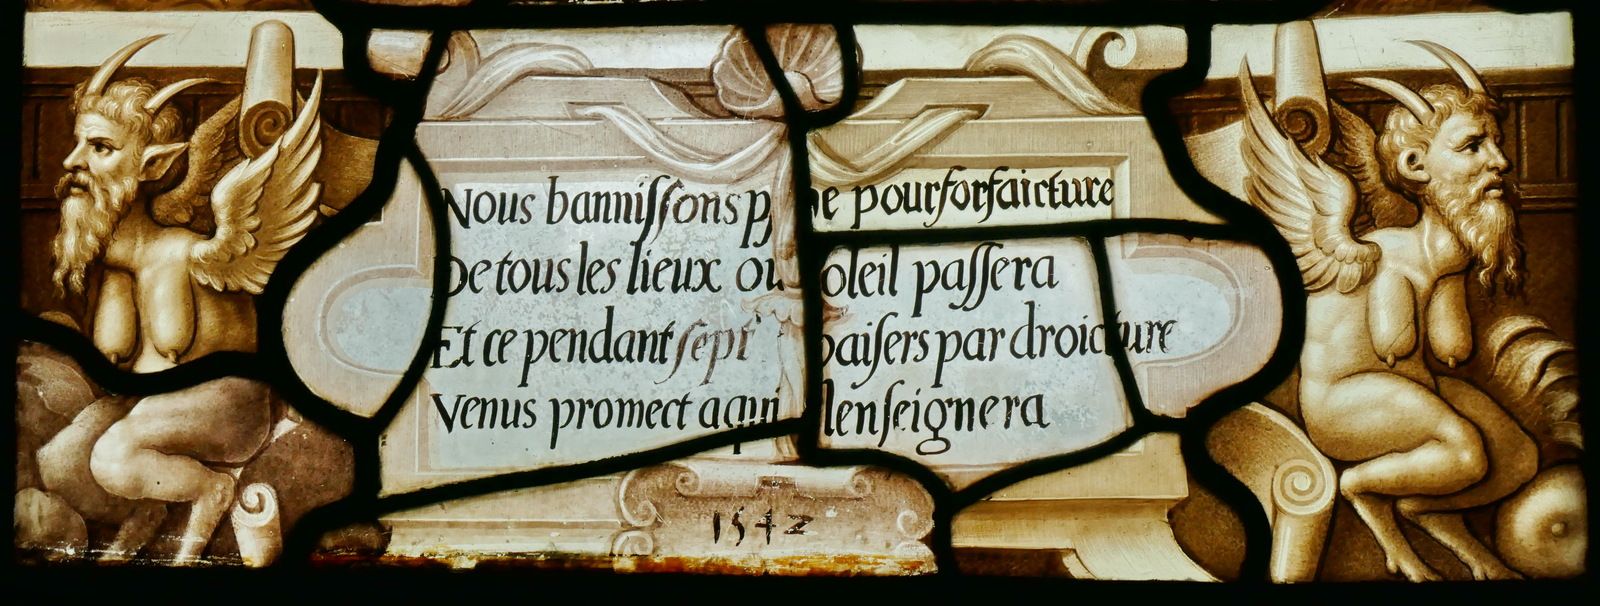 Nous banniſſons p he pour forfaicture
De tous les lieux ou ſoleil paſſera
Et ce pendant ſept baiſers par droicture
Venus promect a qui lenſeignera
1542